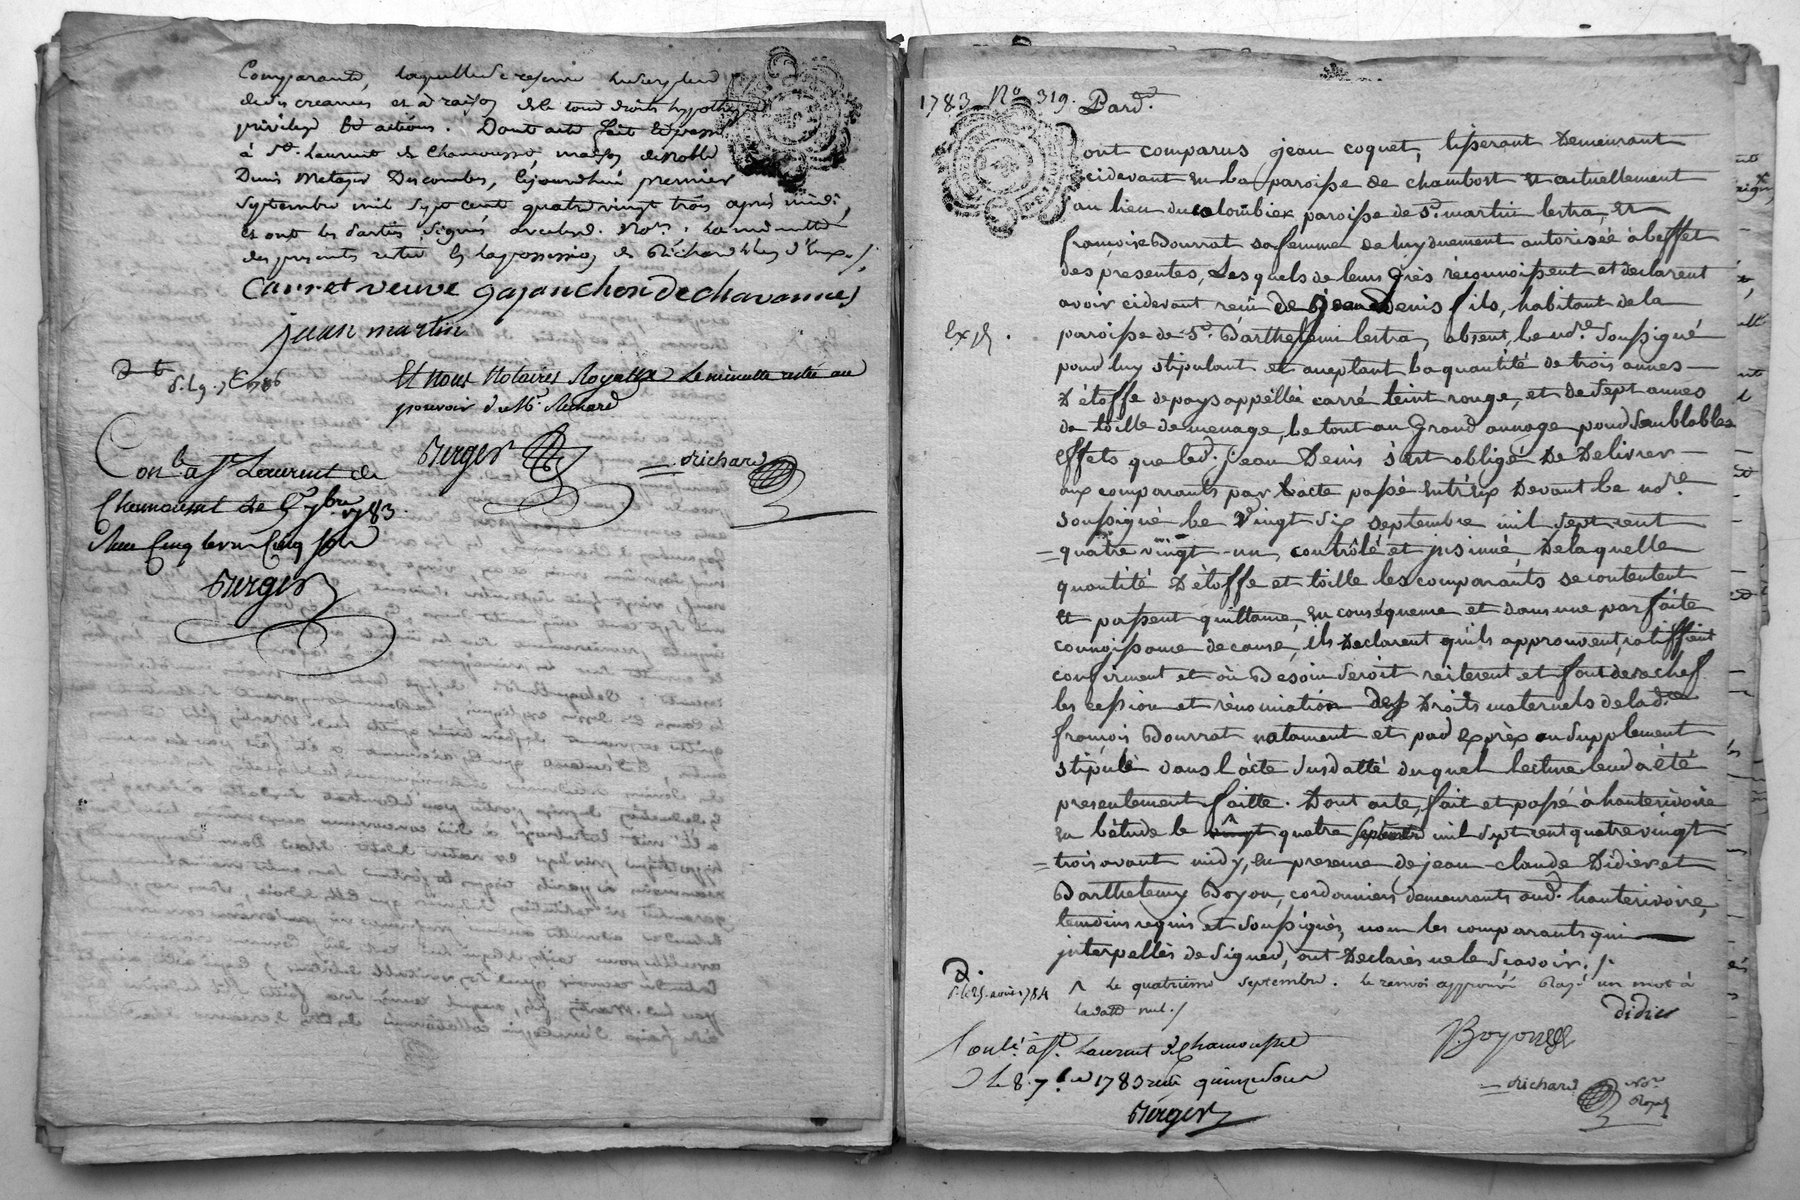 Comparante, laquelle se reserve
desdes creances et a raison de le tout droits hypotheque
privilege et actions. Dont acte fait et passé
à St. Laurent de Chamousset, maison de Noble
Denis Metayer Descombes, cejourdhui premier
septembre mil sept cent quatre vingt trois apres midi,
et ont les parties signés avec lesd. Nores. La minutte
des presentes restée en la possession de Richard l'un d'eux ./.
Canret veuve gajanchon de chavannes
jean martin
Et nous Notaires Royaux Le minutte restée au
pouvoir de Me. Richard
Berger
Richard
Conlé à St. Laurent de
Chamousset le 5 7bre 1783.
Reçu Cinq livres Cinq sols
Berger
1783 No. 319. Pard.
ont comparus jean coquet, tisserant Demeurant
cidevant en la paroisse de chambost et actuellement
au lieu du coloùbier paroisse de St. martin lestra, et
françoise Bourrat sa femme de luy duement autorisée à l'effet
des présentes, Lesquels de leurs grès réconnoissent et declarent
avoir cidevant reçu de jean Denis fils, habitant de la
paroisse de St. Barthelemi lestra, absent, le nore. soussigné
pour luy stipulant et acceptant la quantité de trois aunes
D'étoffe de pays appellée carré teint rouge, et de sept aunes
de toille de menage, le tout au grand aunage pour semblables
effets que led. jean Denis s'est obligé De Delivrer
aux comparants par L'acte passé entr'eux Devant le nore.
soussigné le vingt six septembre mil sept cent
quatre vingt-un, contrôlé et jnsinué, De laquelle
quantité D'étoffe et toille les comparants se contentent
et passent quittance, en conséquence et dans une parfaite
connoissance de cause, ils Déclarent qu'ils approuvent, ratiffient
confirment et où Besoin seroit réiterent et font derechef
les cession et rénonciation des Droits maternels de lad.
françois Bourrat notament et par exprès au supplement
stipulé dans l'acte susdatté duquel lecture leur a été
presentement faitte. Dont acte, fait et passé à hauterivoire
en l'étude le vingt quatre septembre mil sept cent quatre vingt
trois avant midy, en presence de jean claude Didier et
Barthelemy Boyon, cordonniers demeurants aud. hauterivoire,
temoins requis et soussignés, non les comparants qui
jnterpellés de signer, ont Déclarés ne le scavoir ./.
le quatrieme septembre. le renvoi approuvé Rayé un mot à
la datte nul ./.
didier
Boyon
Conlé. à St. Laurent de Chamousset
le 8. 7bre 1783 reçu quinze sous
Berger
Richard Nore.
Royal